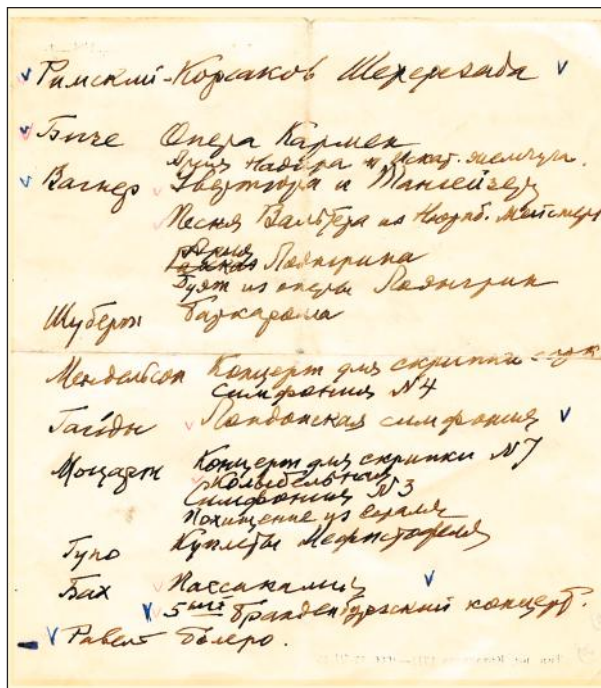 Римский-Корсаков Шехерезада
Бизе Опера Кармен
Ария Надира и Искат. жемчуга.
Вагнер Увертюра к Тангейзеру
Песня Вальтера из Нюрнб. Мейстер
Ария Лоэнгрина
Дуэт из оперы Лоэнгрин
Шуберт Баркаролла
Мендельсон Концерт для скрипки
симфония N4
Гайдн Лондонская симфония
Моцарт Концерт для скрипки N7
Колыбельная
Симфония N3
Похищение из Сераля
Гуно Куплеты Мефистофеля
Бах Пассакалия
5ый Бранденбургский концерт.
Равель Болеро.